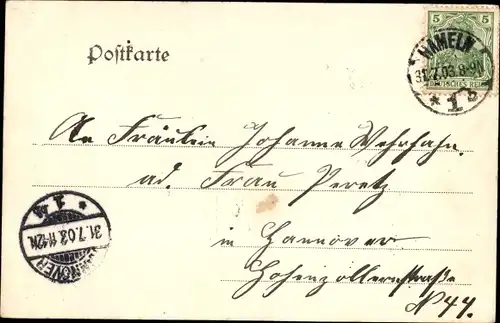 Postkarte
5 5
DEUTSCHES REICH
HAMELN
31.7.03.8-9N.
* 1 b
An Fräulein Johanne Wehrhahn.
ad. Frau Peretz
in Hannover.
Hohenzollernstraße
N 44.
* 1 f
31.7.03.11-12N.
HANNOVER